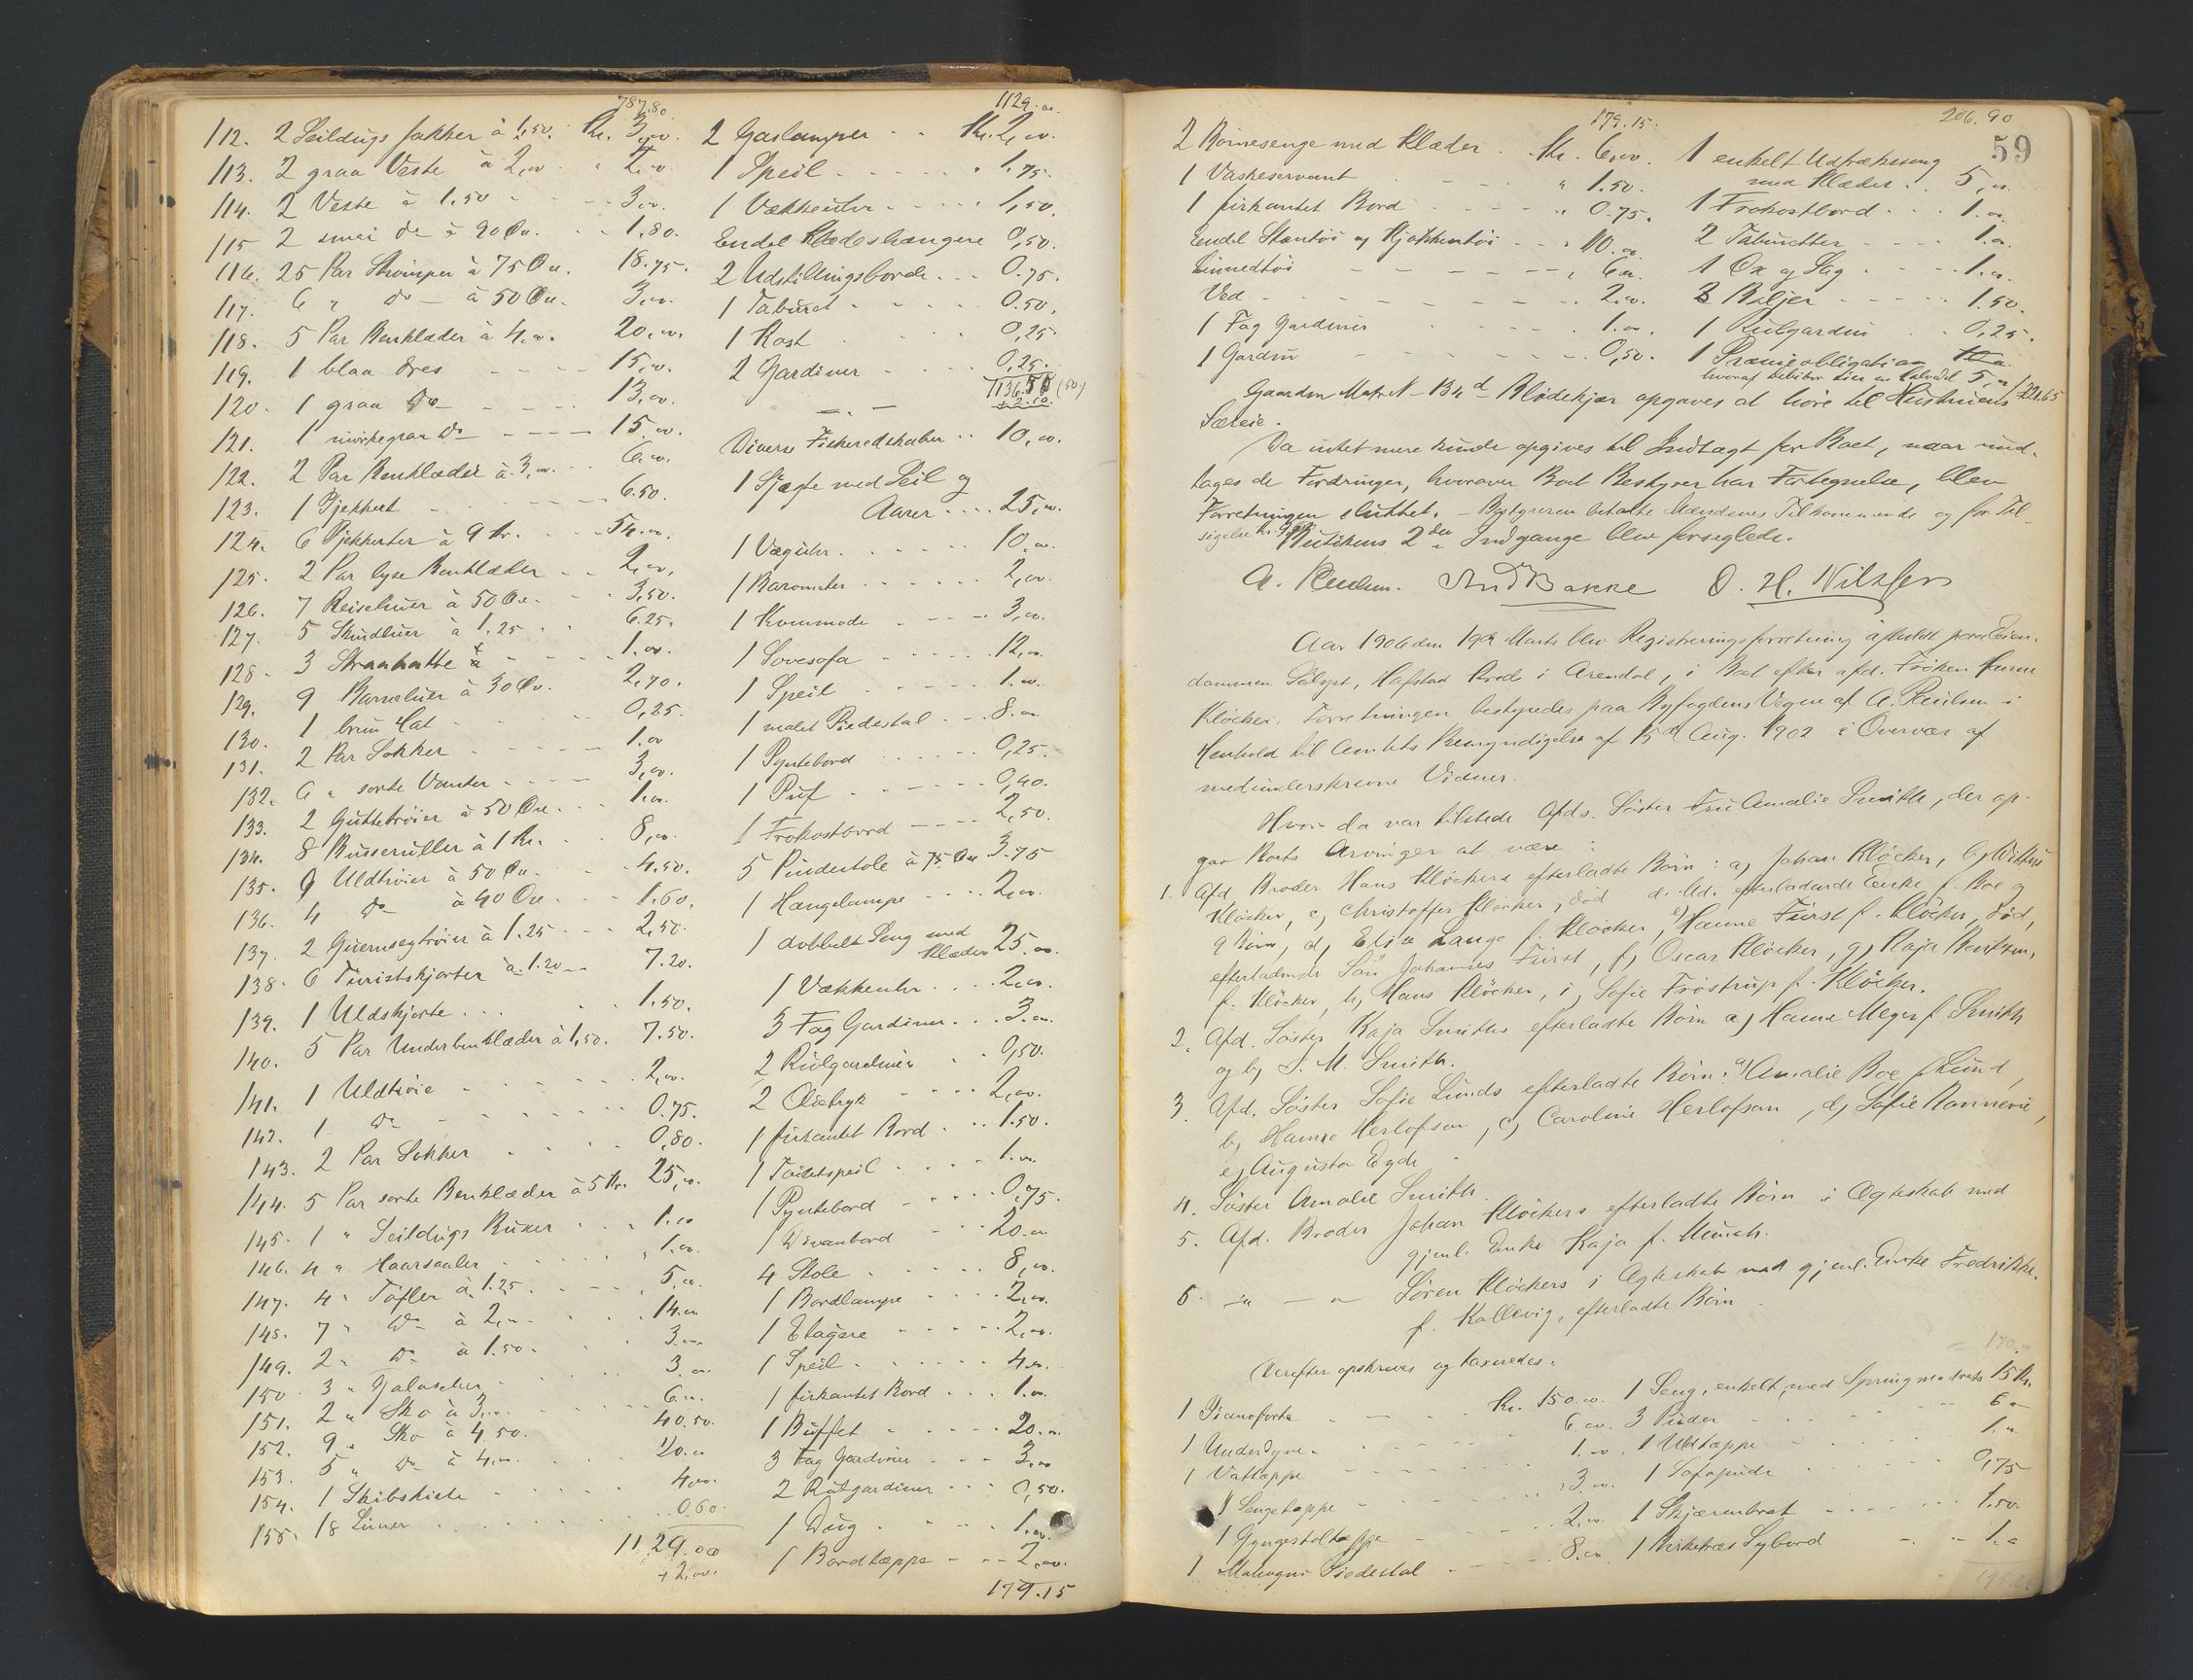 787.80
112. 2 Seildugs Jakker à 1,50. Kr. 3,00.
113. 2 graa Veste à 2,00 " 2,00
114. 2 Veste à 1.50 3,00.
115 2 smaa do à 90 Øre. 1.80.
116. 25 Par Strømper à 75 Øre. 18.75.
117. 6 " do à 50 Øre. 3,00.
118. 5 Par Benklæder à 4,00. 20,00.
119. 1 blaa Dres 15,00.
120. 1 graa Do 13,00.
121. 1 mørkegraa Do 15,00.
122. 2 Par Benklæder à 3,00. 6,00.
123. 1 Pjekkert 6.50.
124. 6 Pjekkerter à 9 Kr. 54,00.
125. 2 Par lyse Benklæder 2,00.
126. 7 Reisehuer à 50 Øre. 3,50.
127. 5 Skindluer à 1.25 6.25.
128. 3 Straahatte 1.00.
129. 9 Barneluer à 30 Øre. 2,70.
130. 1 brun Hat 0,25.
131. 2 Par Sokker 1.00
132. 6 " sorte Vanter 3,00.
133. 2 Guttetrøier à 50 Øre. 1.00.
134. 8 Busseruller à 1 Kr. 8,00.
135. 9 Uldtrøier à 50 Øre. 4.50.
136. 4 do à 40 Øre 1.60.
137. 2 Guernseytrøier à 1.25 2,50.
138. 6 Turistskjorter à 1.20 7.20.
139. 1 Uldskjorte 1.50.
140. 5 Par Underbenklæder à 1,50. 7.50.
141. 1 Uldtrøie 2,00.
142. 1 do 0.75.
143. 2 Par Sokker 0,80.
144. 5 Par sorte Benklæder à 5 Kr. 25,00.
145. 1 " Seildugs Buxer 1.00
146. 4 " Haarsaaler 1.00.
147. 4 " Tøfler à 1.25 5,00.
148. 7 " Do à 2,00 14.00
149. 2 " Do à 1.50. 3.00
150. 3 " Galoscher 3.00.
151. 2 " Sko à 3,00. 6.00.
152. 9 " Sko à 4.50. 40.50.
153. 5 " Do à 4,00. 20.00
154. 1 Skibskiste 4,00.
155. 18 Luer 0.60.
1129.00
+ 2,00.
1129.00
2 Gaslamper Kr. 2,00.
1 Speil " 1,75.
1 Vækkeuhr 1,50.
Endel Klædeshængere 0,50.
2 Udstillingsborde 0.75.
1 Taburet 0.50.
1 Kost 0,25.
2 Gardiner 0,25.
1136.50 (50)
+ 2.00.
Diverse Fiskeredskaber 10,00.
1 Sjægte med Seil og
Aarer 25,00.
1 Væguhr 10,00.
1 Barometer 2,00.
1 Kommode 3,00.
1 Sovesofa 12,00.
1 Speil 1.00.
1 malet Piedestal 8.00
1 Pyntebord 0,25.
1 Puf 0,40.
1 Frokostbord 2,50.
5 Pindestole à 75 Øre 3.75
1 Hængelampe 2,00.
1 dobbelt Seng med
Klæder 25,00.
1 Vækkeuhr 2,00.
3 Fag Gardiner 3.00.
2 Rulgardiner 0,50.
2 Olietryk 2,00.
1 firkantet Bord 1.50.
1 Toiletspeil 1.00
1 Pyntebord 0,75.
1 Divanbord 20.00
4 Stole 8,00.
1 Bordlampe 2,00.
1 Etagere 2,00.
1 Speil 4.00.
1 firkantet Bord 1.00.
1 Buffet 20.00
3 Fag Gardiner 3,00
2 Rulgardiner 0,50.
1 Dug 1.00.
1 Bordtæppe 2,00.
179.15
59
179.15.
2 Børnesenge med Klæder Kr. 6,00.
1 Vaskeservant " 1.50.
1 firkantet Bord " 0.75.
Endel Stentøi og Kjøkkentøi " 10.00
Linnedtøi " 6.00
Ved 2.00.
1 Fag Gardiner 1.00.
1 Gardin 0,50.
206.90
1 enkelt Udtrækseng
med Klæder 5,00
1 Frokostbord 1.00.
2 Taburetter 1.00.
1 Øx og Sag 1.00.
3 Baljer 1.50.
1 Rulgardin 0,25.
1 Præmieobligation 10.00
hvoraf Debitor eier en halvdel 5,00 / 221.65
Gaarden Matr. N - 134 d Blødekjær opgaves at høre til Hustruens
Særeie.
Da intet mere kunde opgives til Indtægt for Boet, naar und-
tages de Fordringer, hvorover Boet Bestyrer har Fortegnelse, blev
Forretningen sluttet. - Bestyreren betalte Mændenes Tilkommende og for Til-
sigelse Kr.
Butikens 2den Indgange blev forseglede.
A. Paulsen. And Bakke O. H. Nilssen
Aar 1906 den 19de Marts blev Registreringsforretning afholdt paa Eien-
dommen Solyst, Hafstad Bred i Arendal, i Boet efter afd. Frøken Hanne
Kløcker. Forretningen bestyredes paa Byfogdens Vegne af A. Paulsen i
Henhold til Amtets Bemyndigelse af 15de Aug. 1902 i Overvær af
medunderskrevne Vidner.
Hvor da var tilstede Afdøs. Søster Fru Amalie Smith, der op-
gav Boets Arvinger at være:
1. Afd. Broder Hans Kløckers efterladte Børn: a, Johan Kløcker, b,
Kløcker, c, Christoffer Kløcker, død efterladende Enke f. Boe og
9 Børn, d, Elise Lange f. Kløcker, e) Hanne Fürst f. Kløcker, død,
efterladende Søn Johannes Fürst, f, Oscar Kløcker, g, Kaja Bentzen,
f. Kløcker, h, Hans Kløcker, i, Sofie Frøstrup f. Kløcker.
2. Afd. Søster Kaja Smiths efterladte Børn a, Hanne Meyer f. Smith
og b, S. M. Smith.
3 Afd. Søster Sofie Lunds efterladte Børn: a, Amalie Boe f. Lund,
b, Hanne Herlofson, c, Caroline Herlofson, d, Sofie Rannevie,
e, Augusta Eyde
4. Søster Amalie Smith.
5. Afd. Broder Johan Kløckers efterladte Børn i Ægteskab med
gjenl. Enke Kaja f. Munch.
6. Søren Kløckers i Ægteskab med gjenl. Enke Fredrikke,
f. Kallevig, efterladte Børn
Derefter opskreves og taxeredes:
1 Pianoforte Kr. 150.00.
1 Underdyne 6.00.
1 Vattæppe 1.00.
1 Sengetæppe 3.00.
1 Gyngestoltæppe 2.00.
1 Mahogni Piedestal 8.00.
170.
1 Seng, enkelt, med Springmadrats 15 Kr.
3 Puder 6 00
1 Uldtæppe 1.00
1 Sofapude 0,75
1 Skjærenbræt 1.50.
1 Birketræs Sybord 1.00